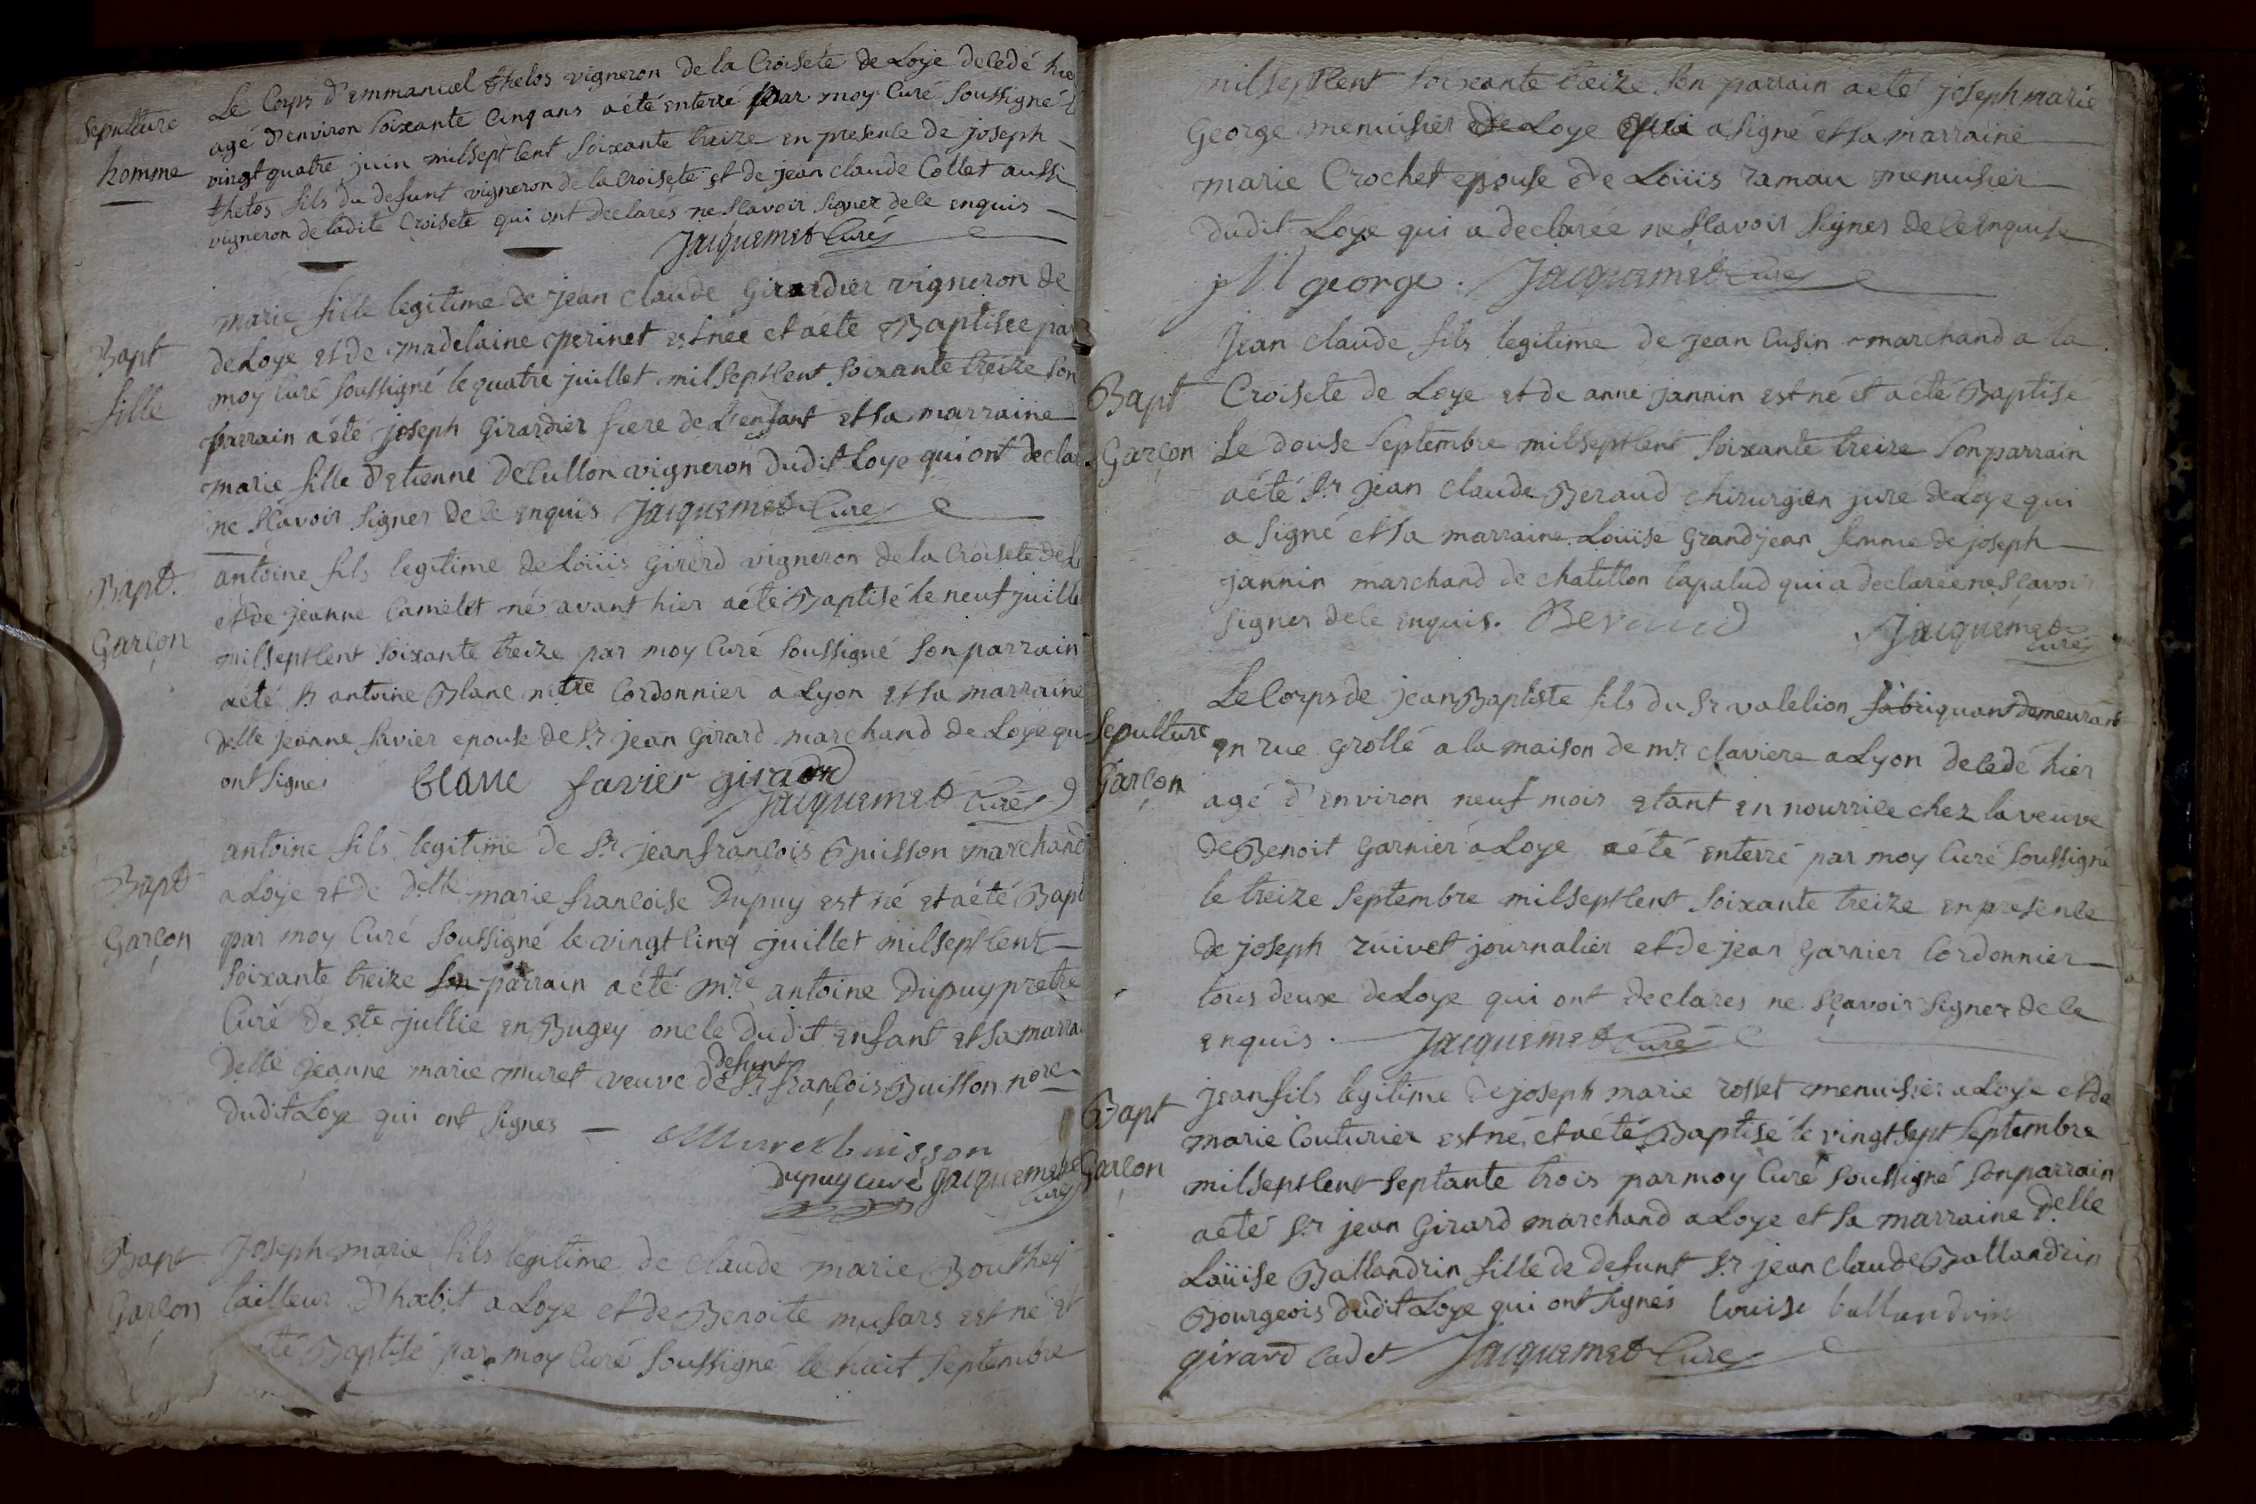 Sepulture
homme
Le Corps d'emmanuel thetos vigneron de la Croisete de Loye decedé hie
agé d'environ soixante cinq ans a été enterré par moy Curé soussigné
vingt quatre juin mil sept cent soixante treize en presence de joseph
thetos fils du defunt vigneron de la Croisete et de jean claude Collet aussi
vigneron de ladite Croisete qui ont declarés ne sçavoir signer de ce enquis
Jacquemet Curé
Bapt
fille
marie fille legitime de jean claude Girardier vigneron de
de Loye et de madelaine perinet est née et a été Baptisée par
moy Curé soussigné le quatre juillet mil sept cent soixante treize son
parrain a été joseph Girardier frere de l'enfant et sa marraine
marie fille d'etienne decullon vigneron dudit Loye qui ont declar
ne sçavoir signer de ce enquis Jacquemet Curé
Bapt.
Garçon
antoine fils legitime de Loüis Girerd vigneron de la Croisete de L
et de jeanne Camelet né avant hier a été Baptisé le neuf juille
mil sept cent soixante treize par moy Curé soussigné son parrain
a été Sr antoine Blanc mtre Cordonnier a Lyon et sa marraine
delle jeanne favier epouse de Sr jean Girard marchand de Loye qu
ont signés blanc favier girard
Jacquemet Curé
Bapt
Garçon
antoine fils legitime de Sr jean françois Buisson marchand
a Loye et de delle marie francoise Dupuy est né et a été Bapt
par moy Curé soussigné le vingt cinq juillet mil sept cent
soixante treize son parrain a été mre antoine Dupuy pretre
Curé de Ste jullie en Bugey oncle dudit enfant et sa marra
delle jeanne marie muret veuve de defunt Sr françois Buisson nore
dudit Loye qui ont signes
Muret buisson
Dupuy curé Jacquemet
Curé
Bapt
Garçon
Joseph marie fils legitime de claude marie Bouthey
tailleur d'habit a Loye et de Benoite musars est né et
été Baptisé par moy Curé soussigné le huit septembre
mil sept cent soixante treize son parrain a été joseph marie
George menuisier de Loye qui a signé et sa marraine
marie Crochet epouse de Loüis ramau menuisier
dudit Loye qui a declarée ne sçavoir signer de ce enquise
j M george. Jacquemet Curé
Bapt
Garçon
Jean claude fils legitime de jean Cusin marchand a la
Croisete de Loye et de anne jannin est né et a été Baptisé
le douse septembre mil sept cent soixante treize son parrain
a été Sr jean claude Beraud chirurgien juré de Loye qui
a signé et sa marraine Loüise Grandjean femme de joseph
jannin marchand de chatillon lapalud qui a declarée ne sçavoir
signer de ce enquis. Beraud Jacquemet
Curé
Sepulture
Garçon
Le Corps de jean Baptiste fils du Sr valelion fabriquant demeurant
en rue grollé a la maison de mr claviere a Lyon decedé hier
agé d'environ neuf mois etant en nourrice chez la veuve
de Benoit Garnier a Loye a été enterré par moy Curé soussigné
le treize septembre mil sept cent soixante treize en presence
de joseph ruivet journalier et de jean Garnier Cordonnier
tous deux de Loye qui ont declarés ne sçavoir signer de ce
enquis. Jacquemet Curé
Bapt
Garçon
jean fils legitime de joseph marie rosset menuisier a Loye et de
marie Couturier est né et a été Baptisé le vingt sept septembre
mil sept cent septante trois par moy Curé soussigné son parrain
a été Sr jean Girard marchand a Loye et sa marraine delle
Loüise Ballandrin fille de defunt Sr jean claude Ballandrin
Bourgeois dudit Loye qui ont signés louise ballandrin
girard cadet Jacquemet Curé